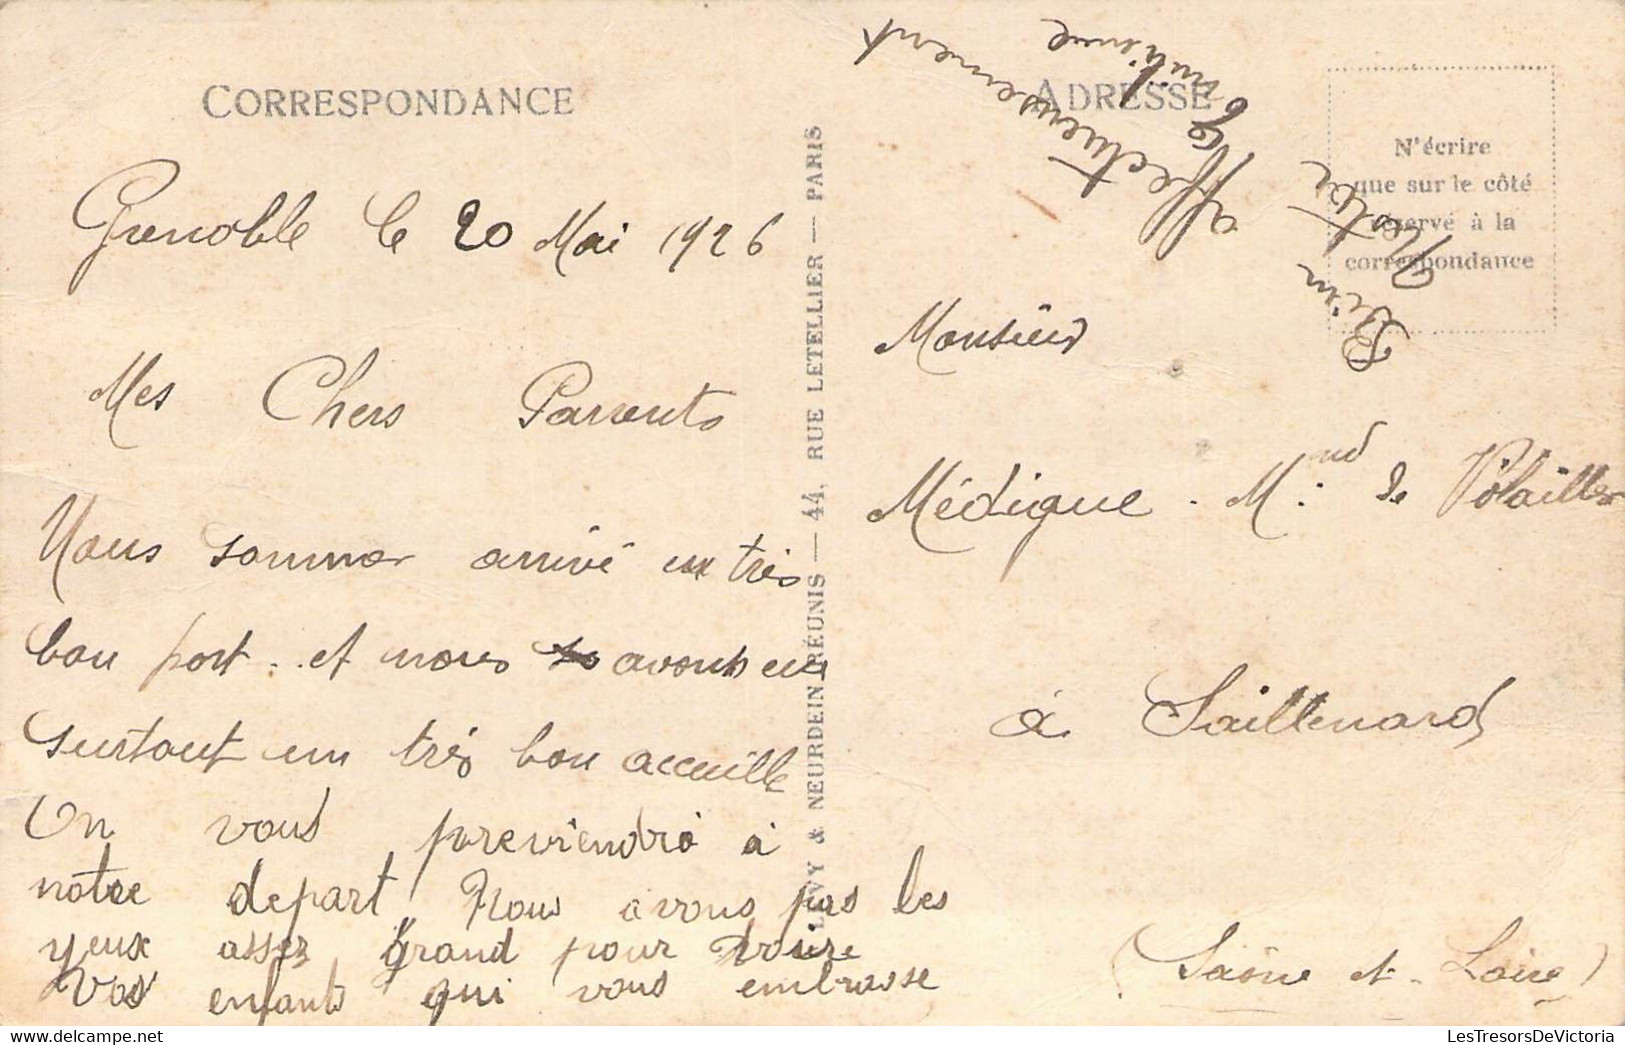 CORRESPONDANCE
Grenoble le 20 Mai 1926
Mes Chers Parrents
Nous sommes arrivé en très
bon port. et nous avons eus
surtout un très bon accuille
On vous previendra à
notre depart Nous avons pas les
yeux assez grand pour voire
Vos enfants qui vous embrasse
affectueusement
LEVY & NEURDEIN RÉUNIS — 44, RUE LETELLIER — PARIS
ADRESSE
N'écrire
que sur le côté
réservé à la
correspondance
Monsieur
Médigue - Md. de Volailles
à Saillenard
(Saône et Loire)
LesTresorsDeVictoria.com